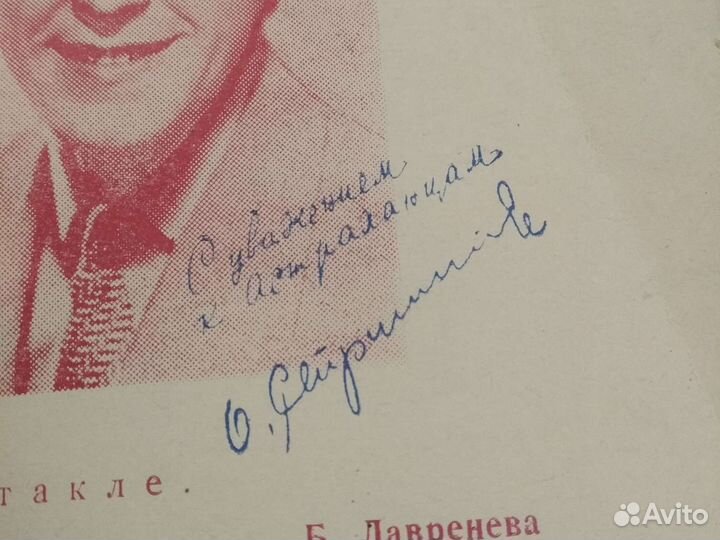 С уважением
к астраханцам
О.
такле.
Б. Лавренева
Avito